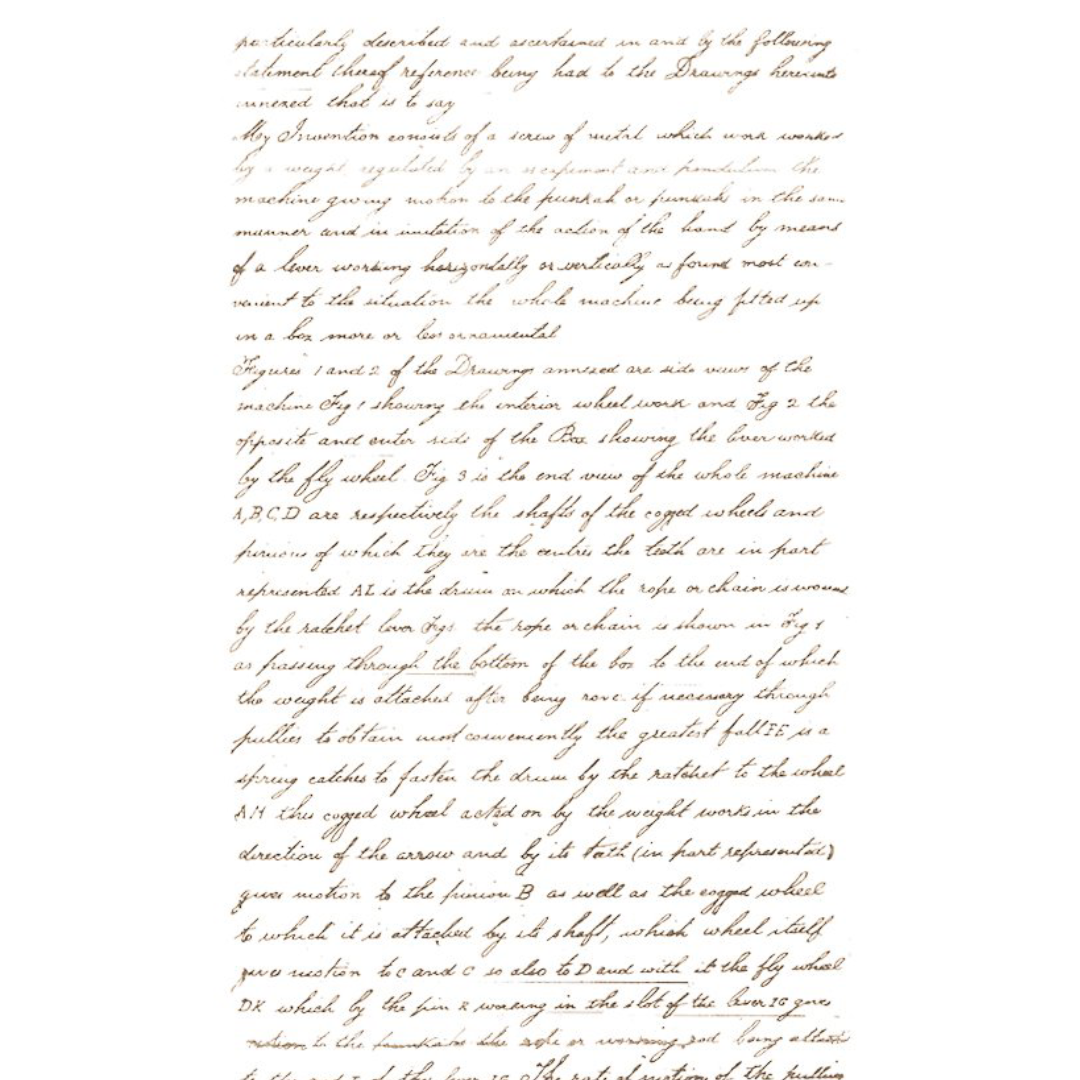 particularly described and ascertained in and by the following
statement thereof reference being had to the Drawings hereunto
annexed that is to say
My Invention consists of a screw of metal which work worked
by a weight regulated by an escapement and pendulum the
machine giving motion to the punkah or punkahs in the same
manner and in imitation of the action of the hand by means
of a lever working horizontally or vertically as found most con-
venient to the situation the whole machine being fitted up
in a box more or less ornamental
Figures 1 and 2 of the Drawings annexed are side views of the
machine Fig 1 showing the interior wheel work and Fig 2 the
opposite and outer side of the Box showing the lever worked
by the fly wheel. Fig 3 is the end view of the whole machine
A, B, C, D are respectively the shafts of the cogged wheels and
pinions of which they are the centres the teeth are in part
represented AL is the drum on which the rope or chain is wound
by the ratchet lever Figs. the rope or chain is shown in Fig 1
as passing through the bottom of the box to the end of which
the weight is attached after being rove if necessary through
pullies to obtain most conveniently the greatest fall EE is a
spring catches to fasten the drum by the ratchet to the wheel
AH this cogged wheel acted on by the weight works in the
direction of the arrow and by its teeth (in part represented)
gives motion to the pinion B as well as the cogged wheel
to which it is attached by its shaft, which wheel itself
gives motion to C and C so also to D and with it the fly wheel
DK which by the pin K working in the slot of the lever IG gives
motion to the punkahs the rope or working rod being attach
to the end I of the lever IG The rate of motion of the pullies